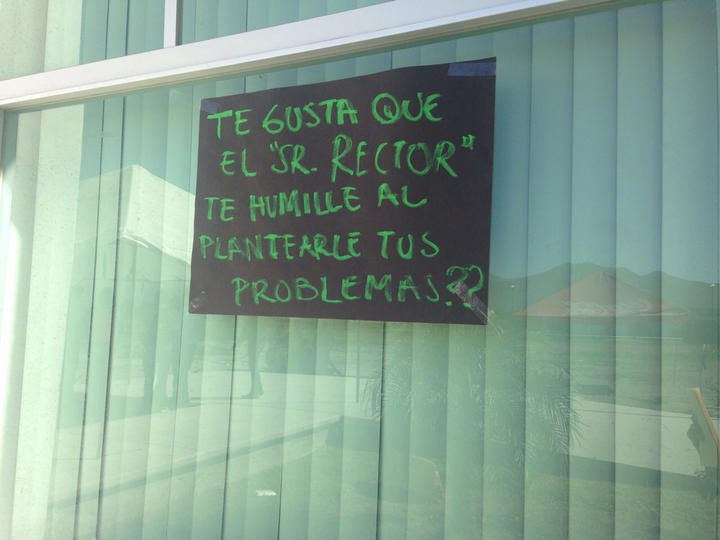 TE GUSTA QUE
EL "SR. RECTOR"
TE HUMILLE AL
PLANTEARLE TUS
PROBLEMAS.??